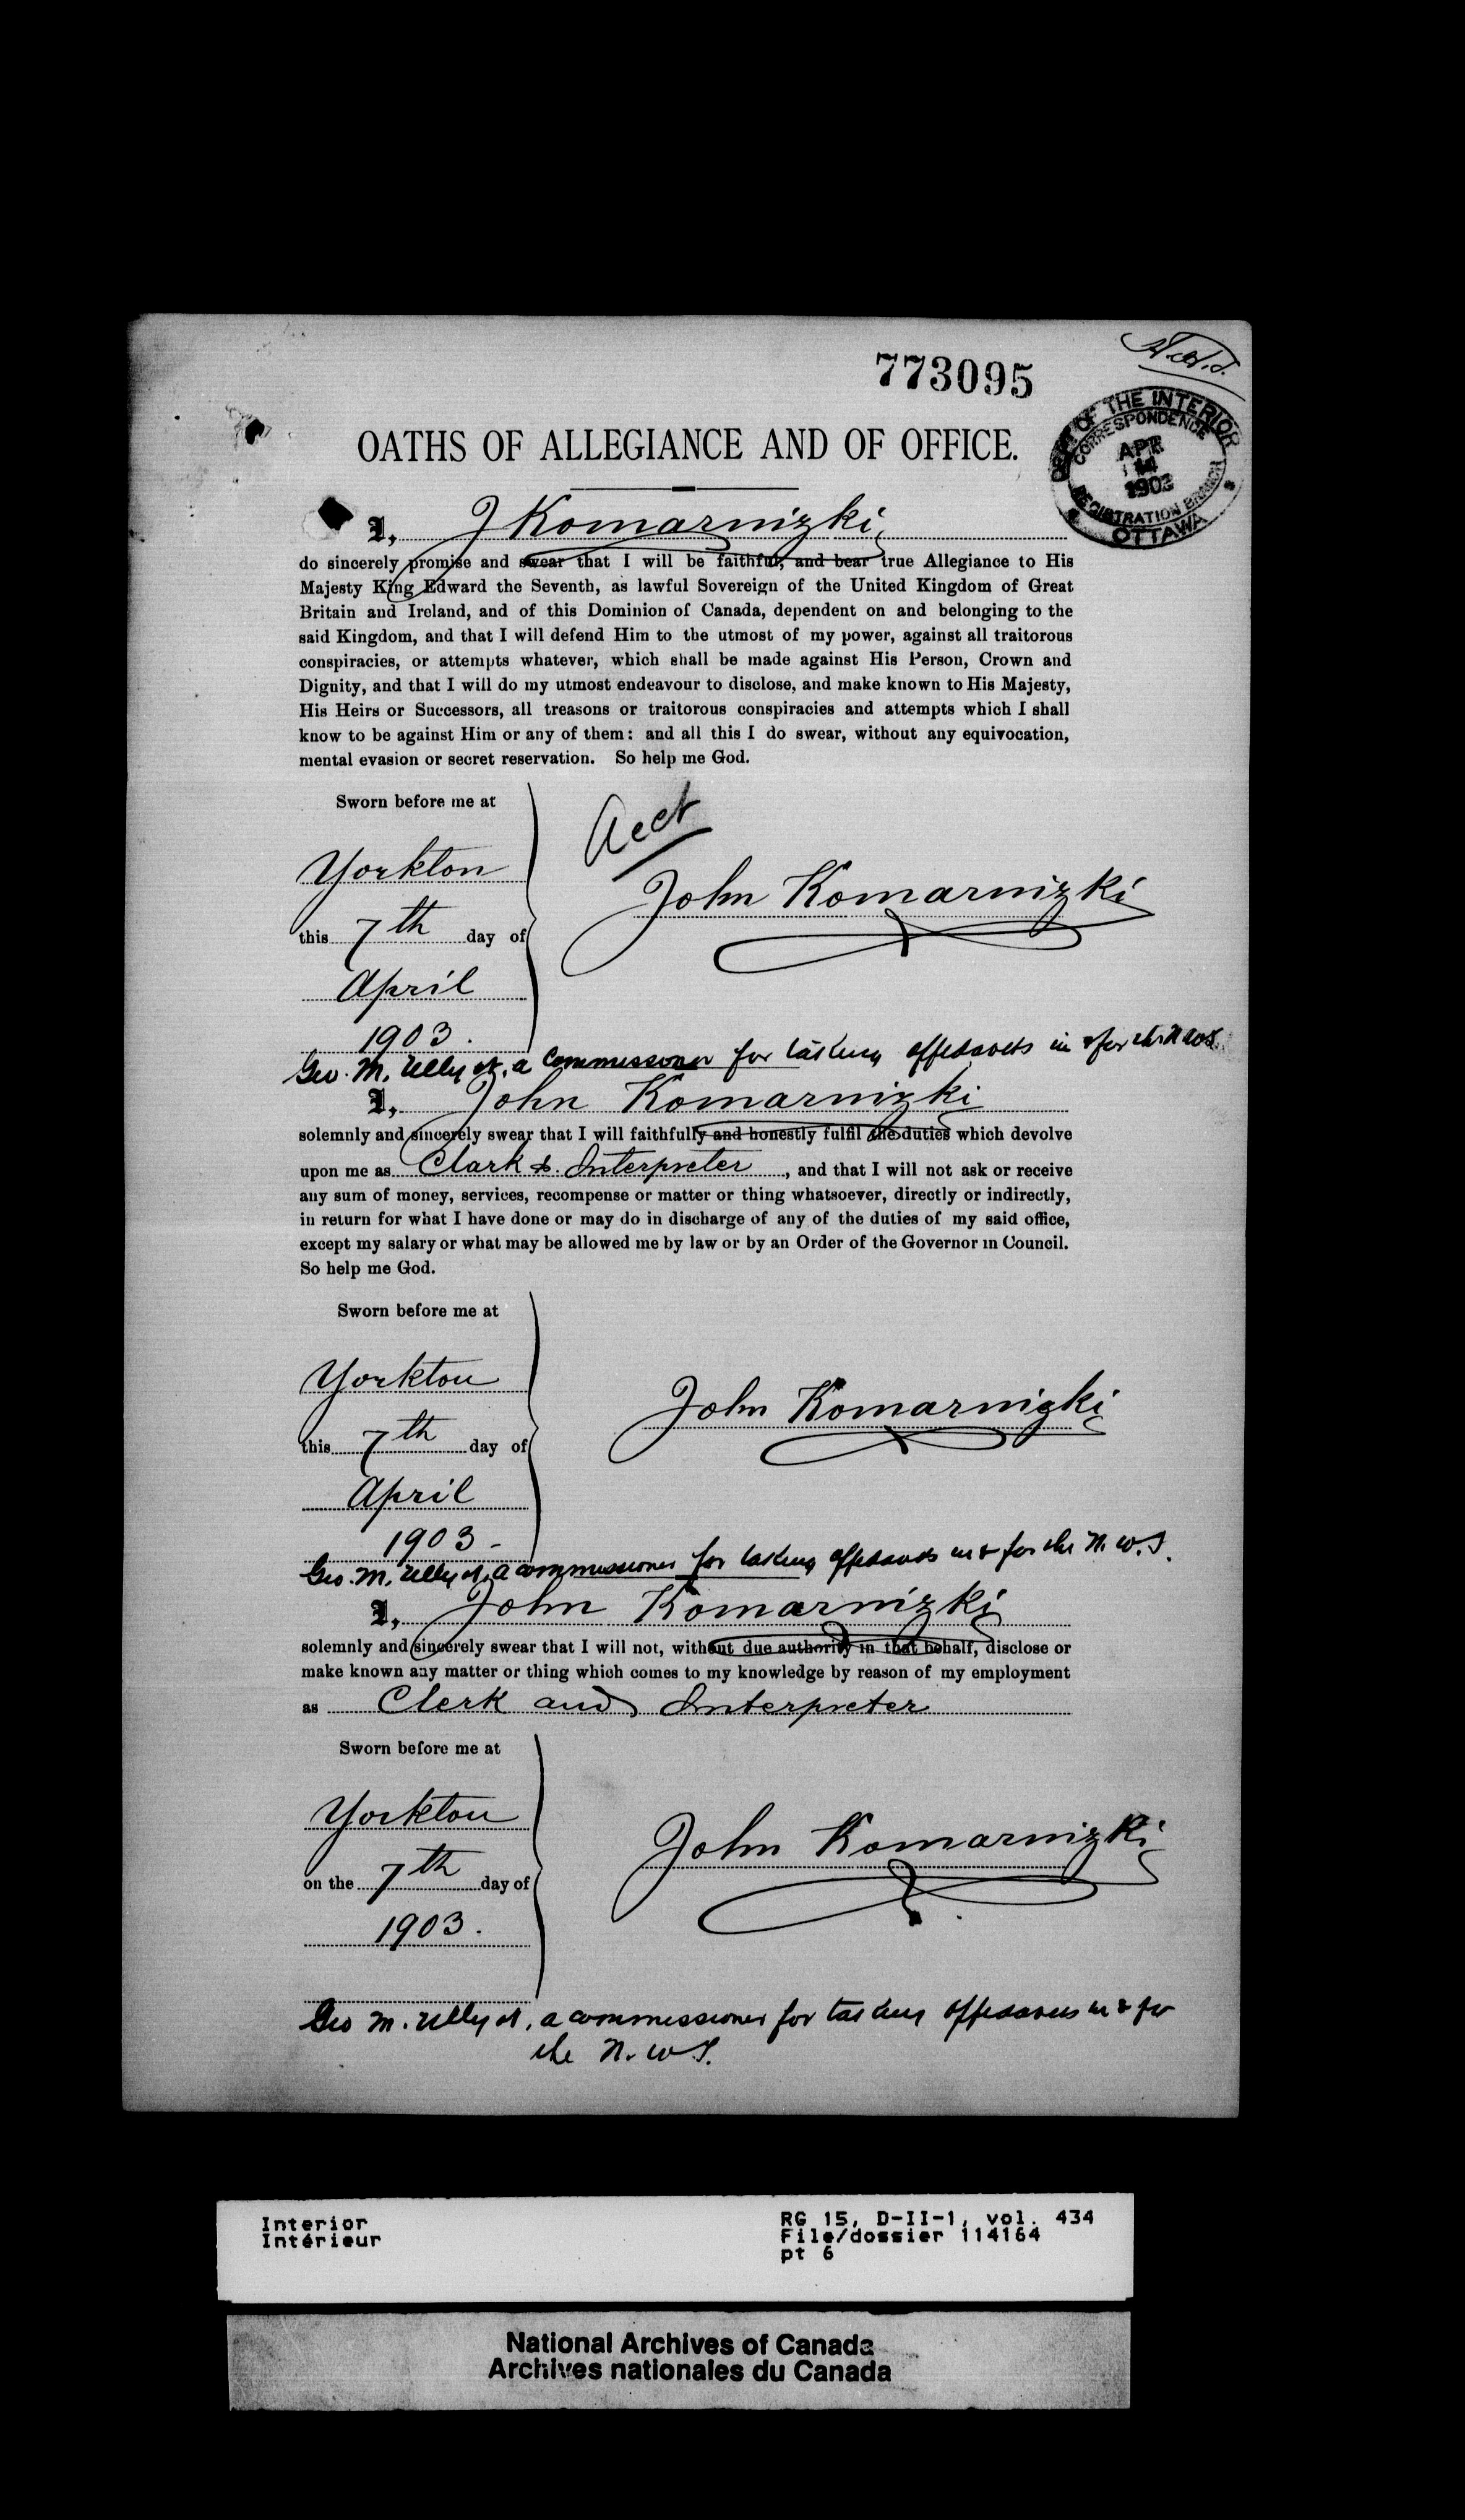 773095
DEPT OF THE INTERIOR
CORRESPONDENCE
APR
14
1903
REGISTRATION BRANCH
OTTAWA
OATHS OF ALLEGIANCE AND OF OFFICE.
I, J Komarnizki
do sincerely promise and swear that I will be faithful, and bear true Allegiance to His
Majesty King Edward the Seventh, as lawful Sovereign of the United Kingdom of Great
Britain and Ireland, and of this Dominion of Canada, dependent on and belonging to the
said Kingdom, and that I will defend Him to the utmost of my power, against all traitorous
conspiracies, or attempts whatever, which shall be made against His Person, Crown and
Dignity, and that I will do my utmost endeavour to disclose, and make known to His Majesty,
His Heirs or Successors, all treasons or traitorous conspiracies and attempts which I shall
know to be against Him or any of them: and all this I do swear, without any equivocation,
mental evasion or secret reservation. So help me God.
Sworn before me at
Acct
Yorkton
John Komarnizki
this 7th day of
April
1903.
Geo. M. a Commissioner for taking affidavits in & for the N.W.T.
I, John Komarnizki
solemnly and sincerely swear that I will faithfully and honestly fulfil the duties which devolve
upon me as Clark & Interpreter, and that I will not ask or receive
any sum of money, services, recompense or matter or thing whatsoever, directly or indirectly,
in return for what I have done or may do in discharge of any of the duties of my said office,
except my salary or what may be allowed me by law or by an Order of the Governor in Council.
So help me God.
Sworn before me at
Yorkton
John Komarnizki
this 7th day of
April
1903-
Geo. M. a commissioner for taking affidavits in & for the N.W.T.
I, John Komarnizki
solemnly and sincerely swear that I will not, without due authority in that behalf, disclose or
make known any matter or thing which comes to my knowledge by reason of my employment
as Clerk and Interpreter
Sworn before me at
Yorkton
John Komarnizki
on the 7th day of
1903.
Geo M. a commissioner for taking affidavits in & for
the N.W.T.
Interior
Intérieur
RG 15, D-II-1, vol. 434
File/dossier 114164
pt 6
National Archives of Canada
Archives nationales du Canada